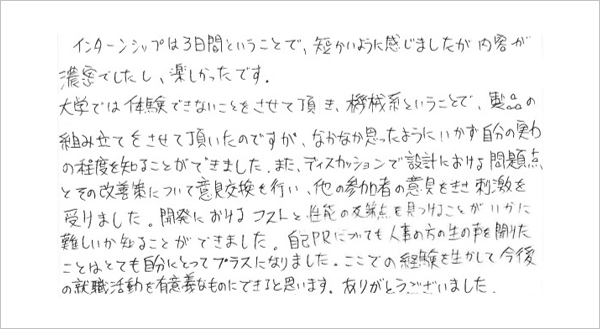 インターンシップは3日間ということで、短かいように感じましたが内容が
濃密でしたし、楽しかったです。
大学では体験できないことをさせて頂き、機械系ということで、製品の
組み立てをさせて頂いたのですが、なかなか思ったようにいかず自分の実力
の程度を知ることができました。また、ディスカッションで設計における問題点
とその改善策について意見交換を行い、他の参加者の意見をきき刺激を
受けました。開発におけるコストと性能の交差点を見つけることがいかに
難しいか知ることができました。自己PRについても人事の方の生の声を聞けた
ことはとても自分にとってプラスになりました。ここでの経験を生かして今後
の就職活動を有意義なものにできると思います。ありがとうございました。